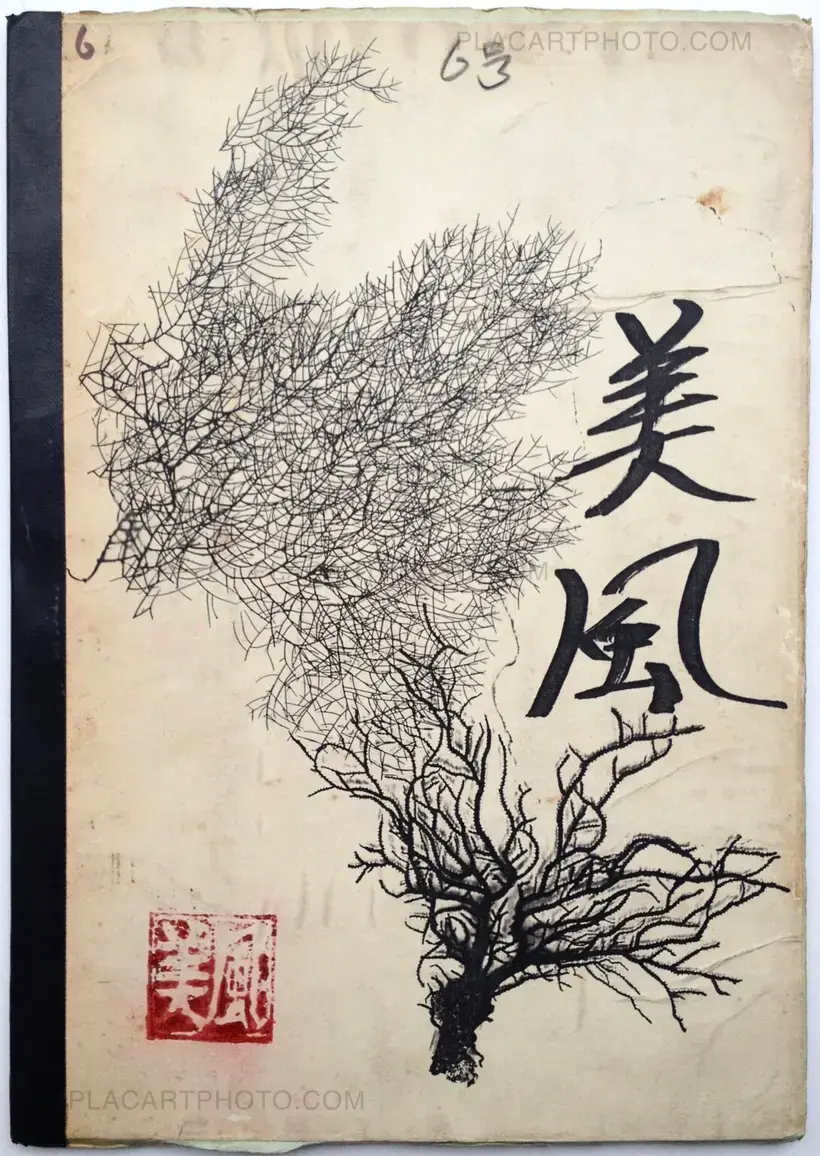 6
6号
PLACARTPHOTO.COM
美
風
美風
PLACARTPHOTO.COM